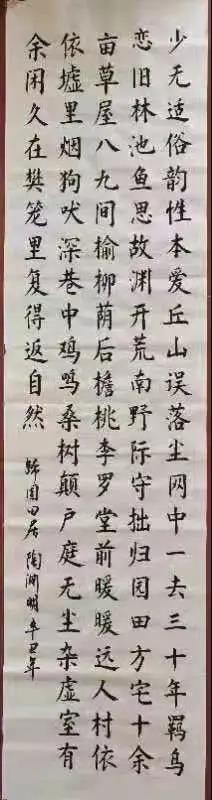 少无适俗韵性本爱丘山误落尘网中一去三十年羁鸟
恋旧林池鱼思故渊开荒南野际守拙归园田方宅十余
亩草屋八九间榆柳荫后檐桃李罗堂前暖暖远人村依
依墟里烟狗吠深巷中鸡鸣桑树颠户庭无尘杂虚室有
余闲久在樊笼里复得返自然
歸园田居 陶渊明 辛丑年